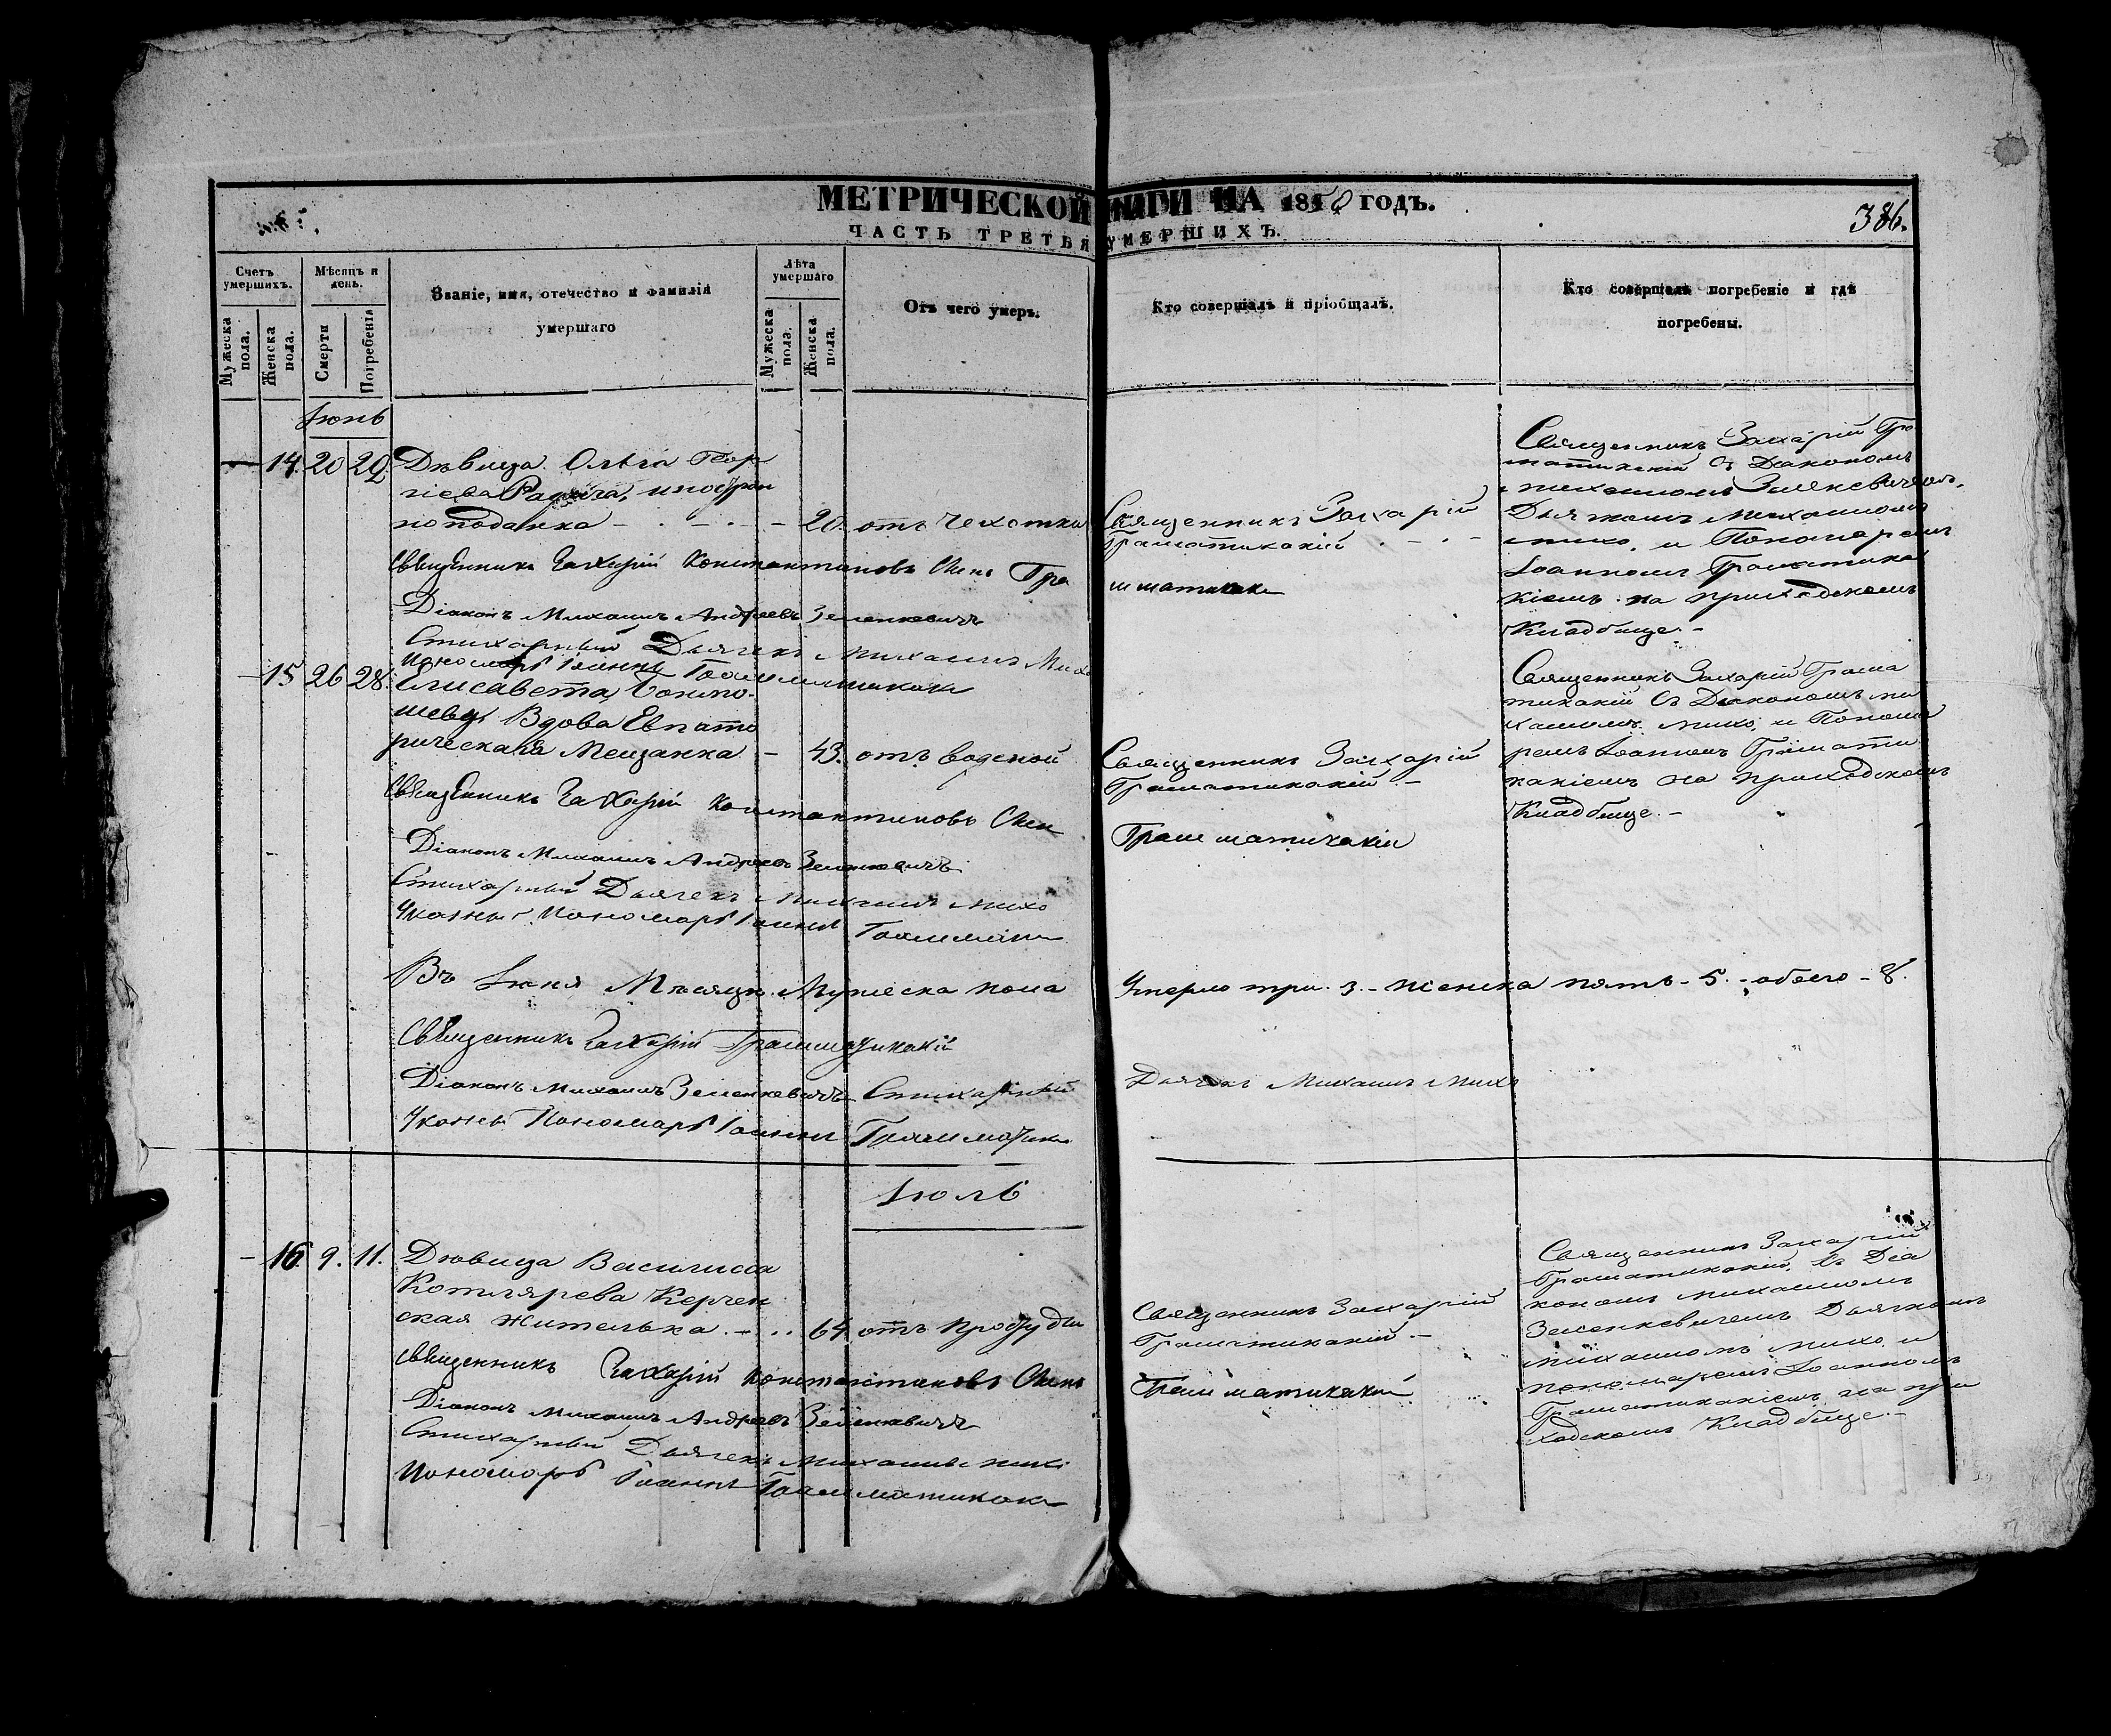 МЕТРИЧЕСКОЙ КНИГИ НА 1850 ГОДЪ.
386.
ЧАСТЬ ТРЕТЬЯ УМЕРШИХЪ.
Счетъ умершихъ.
Мужеска пола.
Женска пола.
Мѣсяцъ и день.
Смерти
Погребенія
Званіе, имя, отечество и фамилія
умершаго
Лѣта умершаго
Мужеска пола.
Женска пола.
Отъ чего умеръ.
Кто совершалъ и пріобщалъ.
Кто совершалъ погребеніе и гдѣ
погребены.
Іюнь
14. 20 22 Дѣвица Ольга Геор
гіева иностран
но поданка 20. отъ Чехотки
Священникъ Захарій
Граматикакій
Священникъ Захарій Гра
матикакій съ Діакономъ
михаиломъ Зиленкевичемъ,
Дьячкомъ михаиломъ
михо, и Пономаремъ
Іоанномъ Граматика
кіемъ на приходскомъ
Кладбище.
Священникъ Захарій Константиновъ Сынъ Гра
мматикаки
Діаконъ Михаилъ Андреевъ Зеленкевичъ
Стихарный Дьячекъ Михаилъ Михо
Пономарь Іоаннъ Грамматикаки
15 26 28. Елисавета
Вдова Евпато
рическая Мещанка 43. отъ водяной
Священникъ Захарій
Граматикакій
Священникъ Захарій Грама
тикакій съ Діакономъ ми
хаиломъ михо, и Понома
ремъ Іоанномъ Грамати
какіемъ на приходскомъ
Кладбище.
Священникъ Захарій Константиновъ Сынъ
Грамматикакіи
Діаконъ Михаилъ Андреевъ Зеленкевичъ
Стихарный Дьячекъ Михаилъ Михо
Пономарь Іоаннъ
Въ Іюнѣ Мѣсяцѣ Мужеска пола Умерло три. 3. женска пять. 5. обоего 8.
Священникъ Захарій Грамматикакій
Діаконъ Михаилъ Зеленкевичъ Стихарный Дьячекъ Михаилъ Михо
Пономарь Іоаннъ
Іюль
16. 9. 11. Дѣвица Василиса
Котлярева Керчен
ская жителька 64. отъ простуды
Священникъ Захарій
Граматикакій
Священникъ Захарій
Граматикакій, съ Діа
кономъ михаиломъ
Зеленкевичемъ Дьячкомъ
михаиломъ михо и
пономаремъ Іоанномъ
Граматикакіемъ на при
ходскомъ Кладбище.
Священникъ Захарій Константиновъ Сынъ
Грамматикакій
Діаконъ Михаилъ Андреевъ Зеленкевичъ
Стихарный Дьячекъ Михаилъ Михо
Пономарь Іоаннъ Грамматикаки